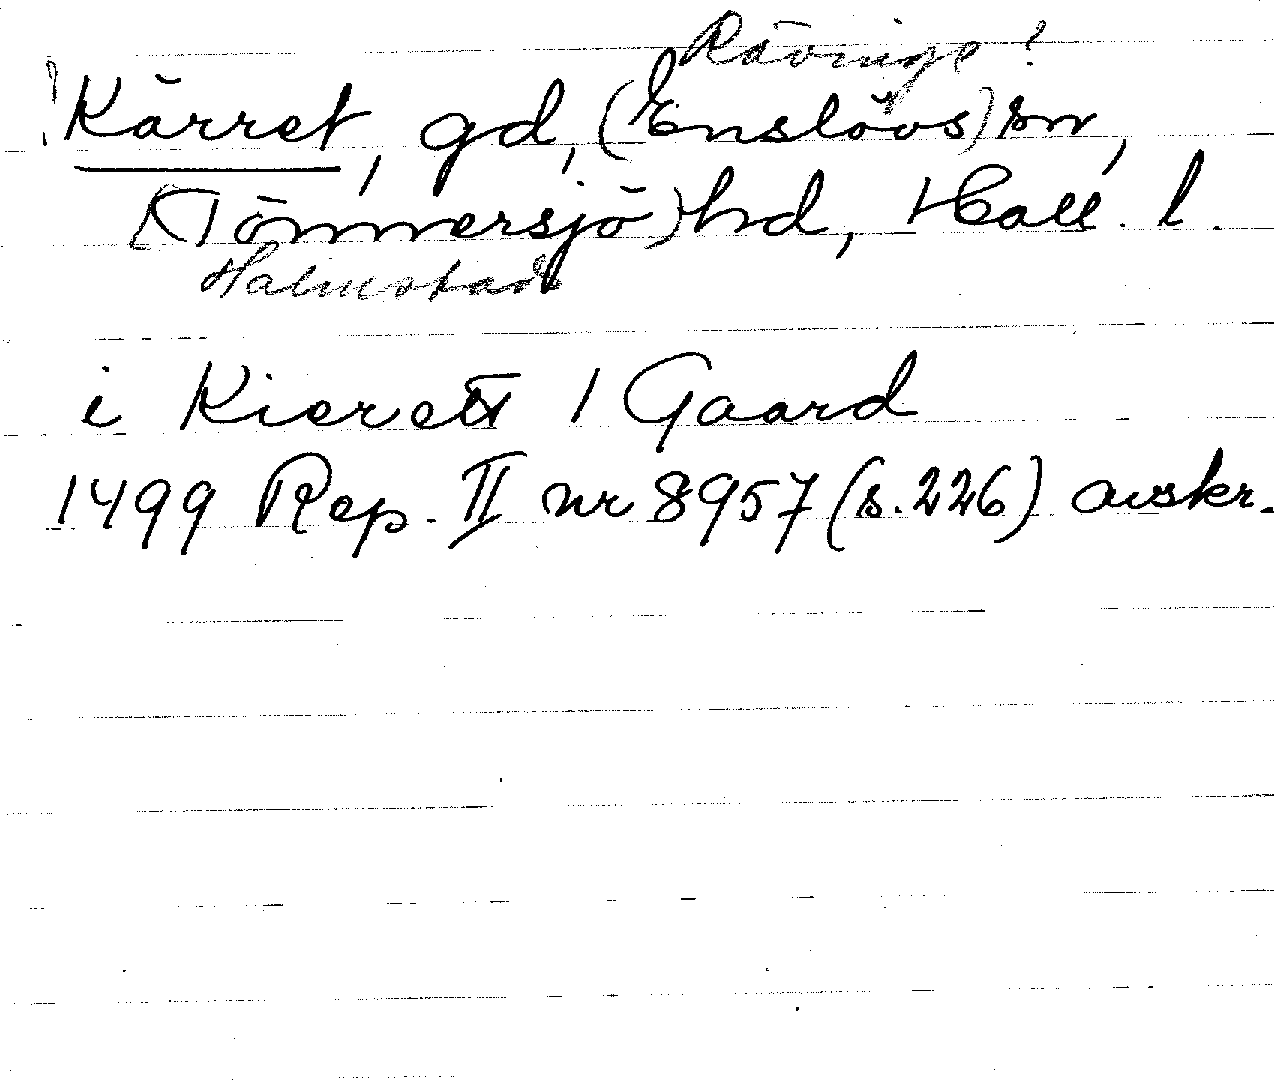 Rävinge!
! Kärret, gd, (Enslövs) sn,
(Tönnersjö) hd, Hall. l.
Halmstad
i Kierett 1 Gaard
1499 Rep. II nr 8957 (s. 226) avskr.